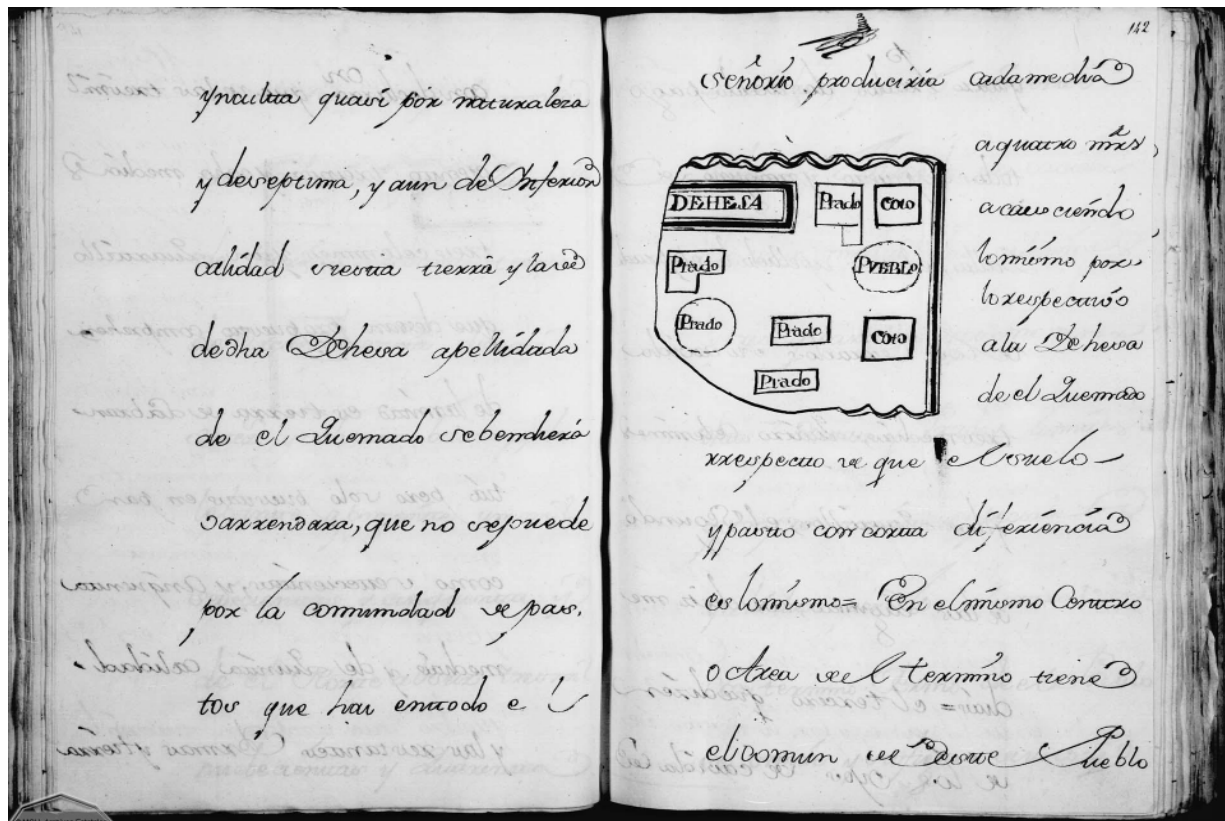 ynculta quasi por naturaleza
y deseptima, y aun de Inferior
calidad siesta tierra y la sêd
de dha Dehesa apellidada
de el Quemado sebendiera
o arrendara, que no sepuede
por la comunidad de pas,
tos que hai entodo e l
142
Señorio produciria cadamedia
a quatro mrs,
acaeciendo
lomismo por
lo respectivo
ala Dehesa
de el Quemado
DEHESA
Prado
Coto
Prado
PUEBLO
Prado
Prado
Coto
Prado
respecto de que el suelo
y pasto con corta diferiencia
es lomismo= En elmismo Centro
o Area de el termino tiene
el comun de Pueblo